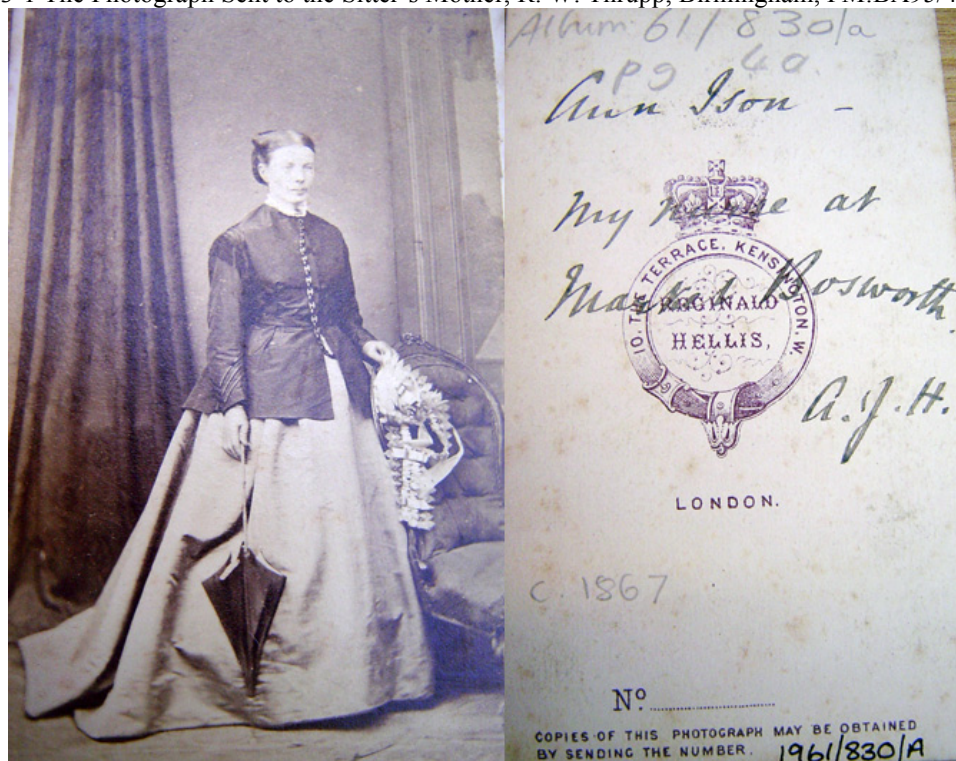 The Photograph Sent to the Sitter's Mother, R. W. Thrupp, Birmingham,
Album 61/830/a
pg 4a
Ann Ison –
My nurse at
Market Bosworth.
A.J.H.
10. THE TERRACE. KENSINGTON. W.
REGINALD
HELLIS,
LONDON.
c. 1867
No.
COPIES OF THIS PHOTOGRAPH MAY BE OBTAINED
BY SENDING THE NUMBER. 1961/830/A